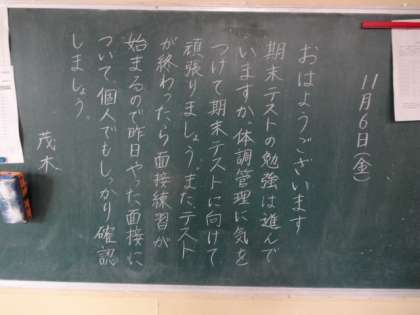 11月6日(金)
おはようございます
期末テストの勉強は進んで
いますか。体調管理に気を
つけて期末テストに向けて
頑張りましょう。また、テスト
が終わったら面接練習が
始まるので昨日やった面接に
ついて個人でもしっかり確認
しましょう。
茂木